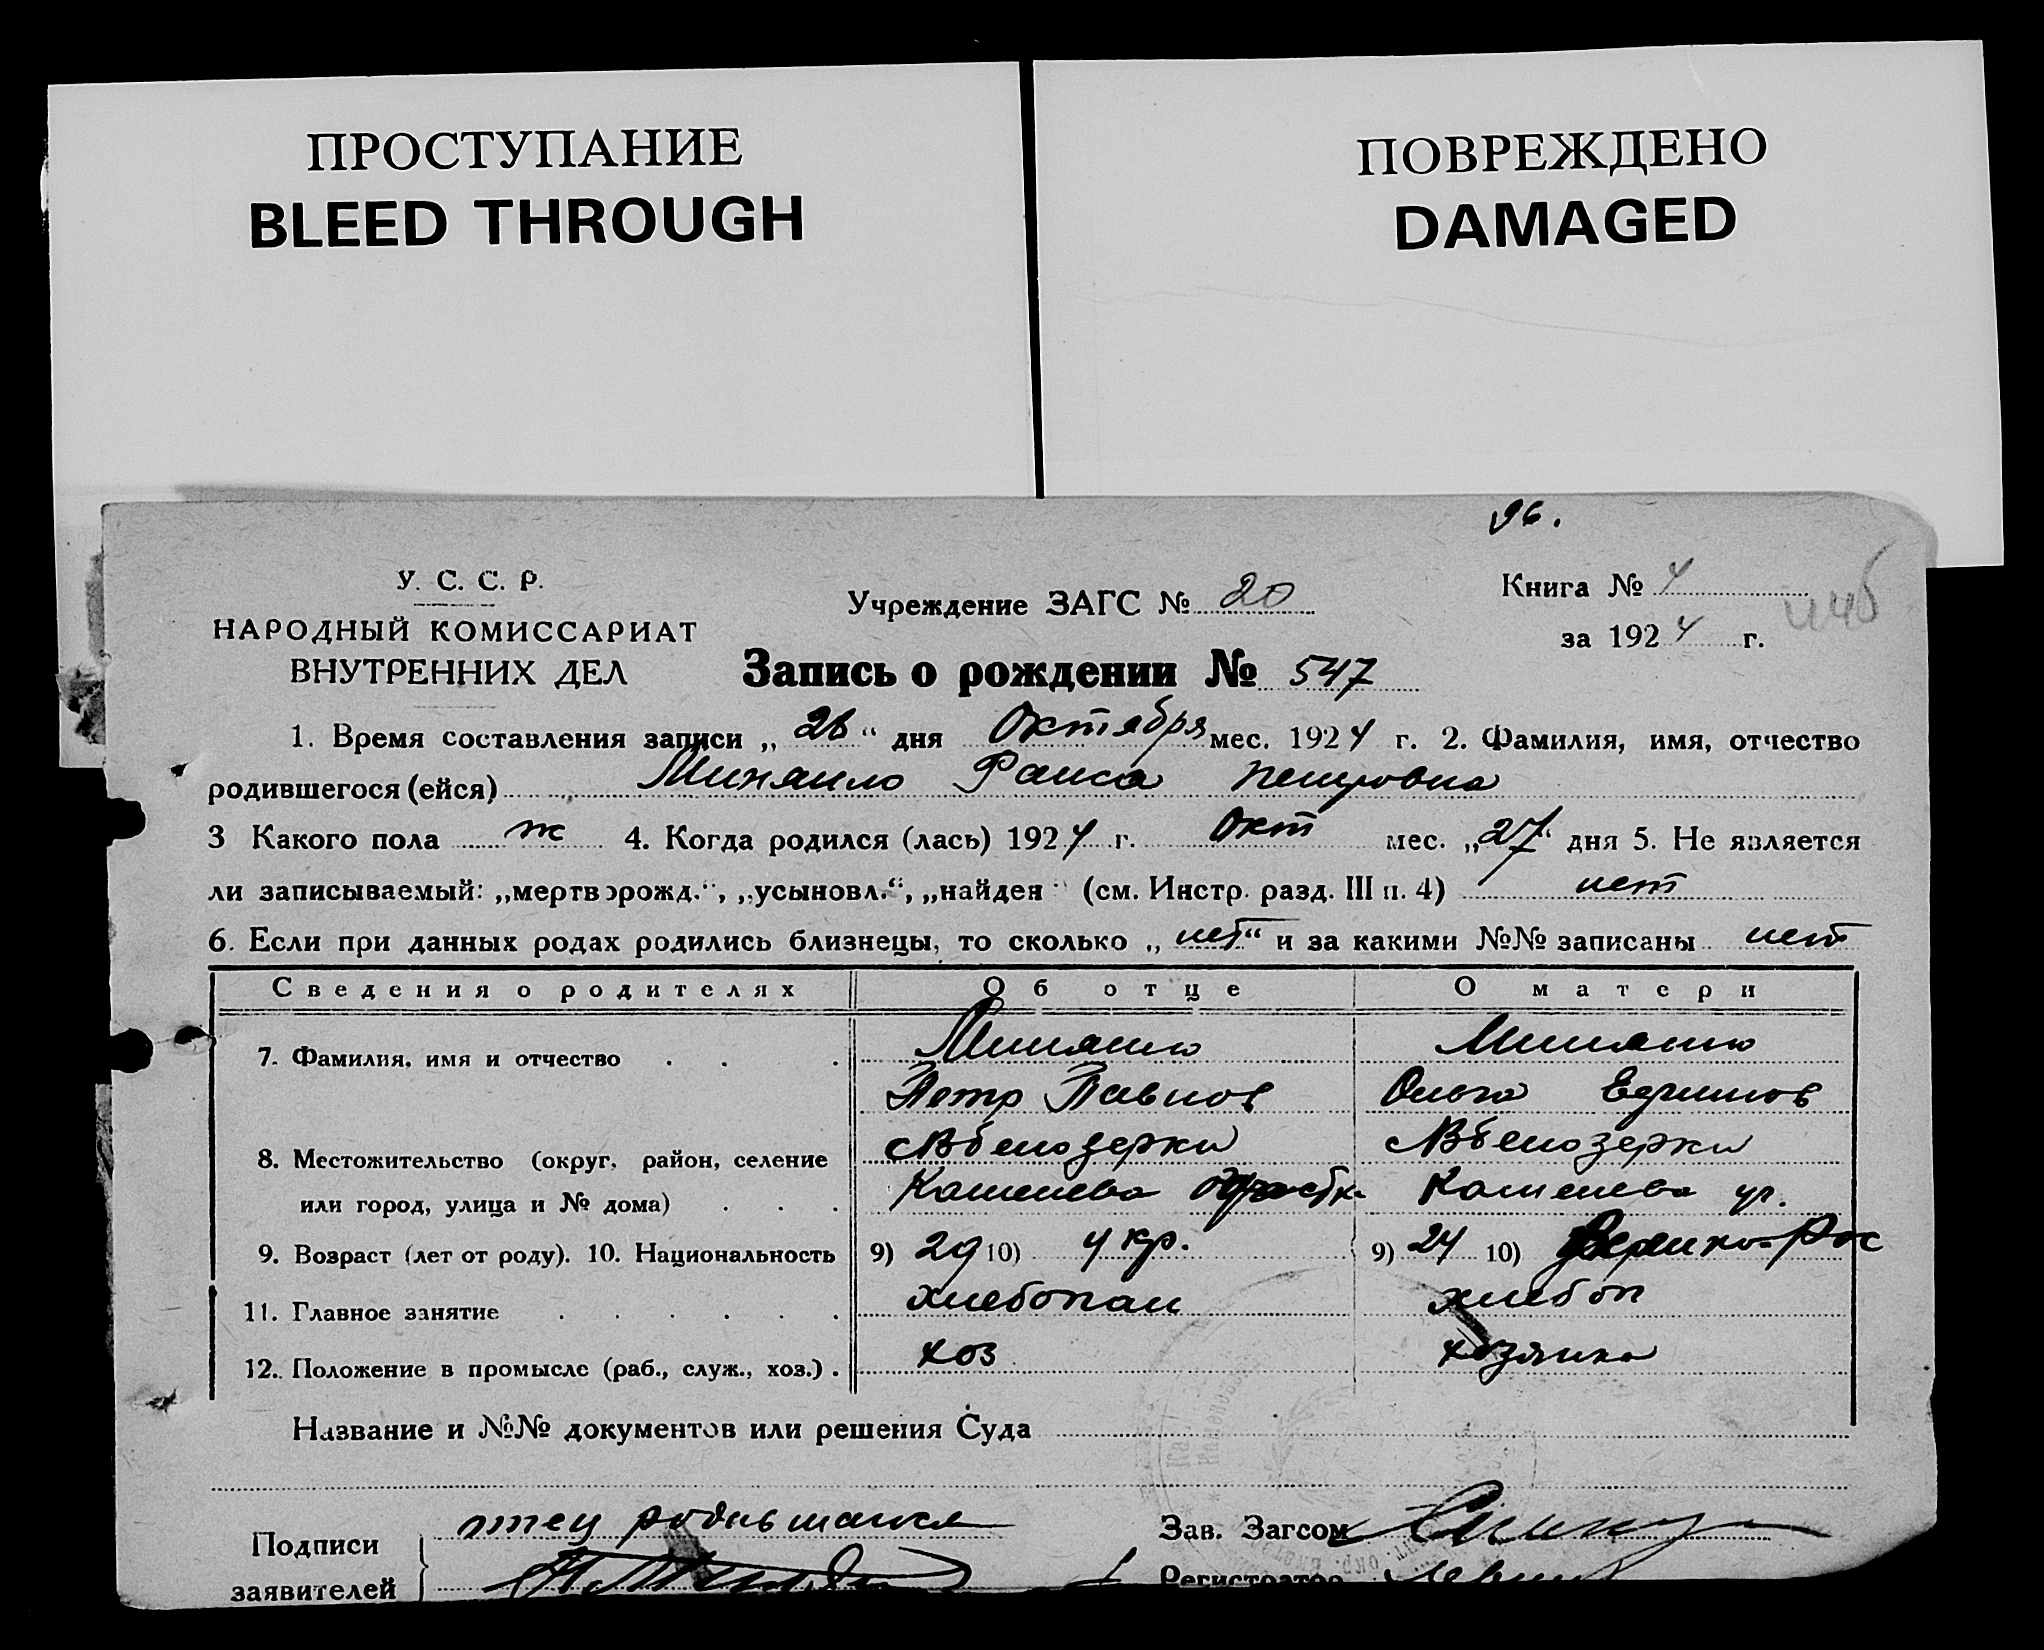 ПРОСТУПАНИЕ
BLEED THROUGH
ПОВРЕЖДЕНО
DAMAGED
96.
У. С. С. Р.
НАРОДНЫЙ КОМИССАРИАТ
ВНУТРЕННИХ ДЕЛ
Учреждение ЗАГС № 20
Книга № 4
за 1924 г.
Запись о рождении № 547
1. Время составления записи „ 28 “ дня Октября мес. 1924 г. 2. Фамилия, имя, отчество
родившегося (ейся) Раиса Петровна
3 Какого пола ж 4. Когда родился (лась) 1924 г. Окт мес. „27“ дня 5. Не является
ли записываемый: „мертворожд.“, „усыновл.“, „найден“ (см. Инстр. разд. III п. 4) нет
6. Если при данных родах родились близнецы, то сколько „ нет “ и за какими №№ записаны нет
Сведения о родителях Об отце О матери
7. Фамилия, имя и отчество
Петр Павлов Ольга Ефимов
8. Местожительство (округ, район, селение
или город, улица и № дома)
Белозерки Белозерки
9. Возраст (лет от роду). 10. Национальность 9) 29 10) укр. 9) 24 10) Велико-Рос
11. Главное занятие хлебопаш хлебоп
12. Положение в промысле (раб., служ., хоз.) хоз хозяйка
Название и №№ документов или решения Суда
Подписи
заявителей
отец родившагося
Зав. Загсом
Регистратор